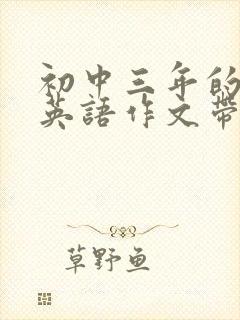 初中三年的
英語作文帶
草野魚